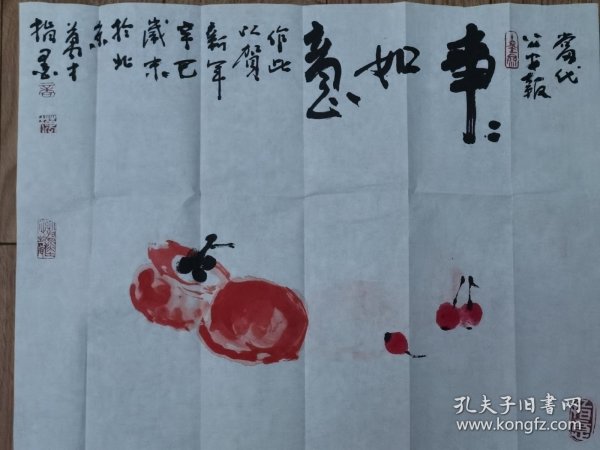 當代
公安報
事〻
如
意
作此
以賀
新年
辛巳
歲末
於北
京
萬才
指墨
孔夫子旧书网
www.kongfz.com